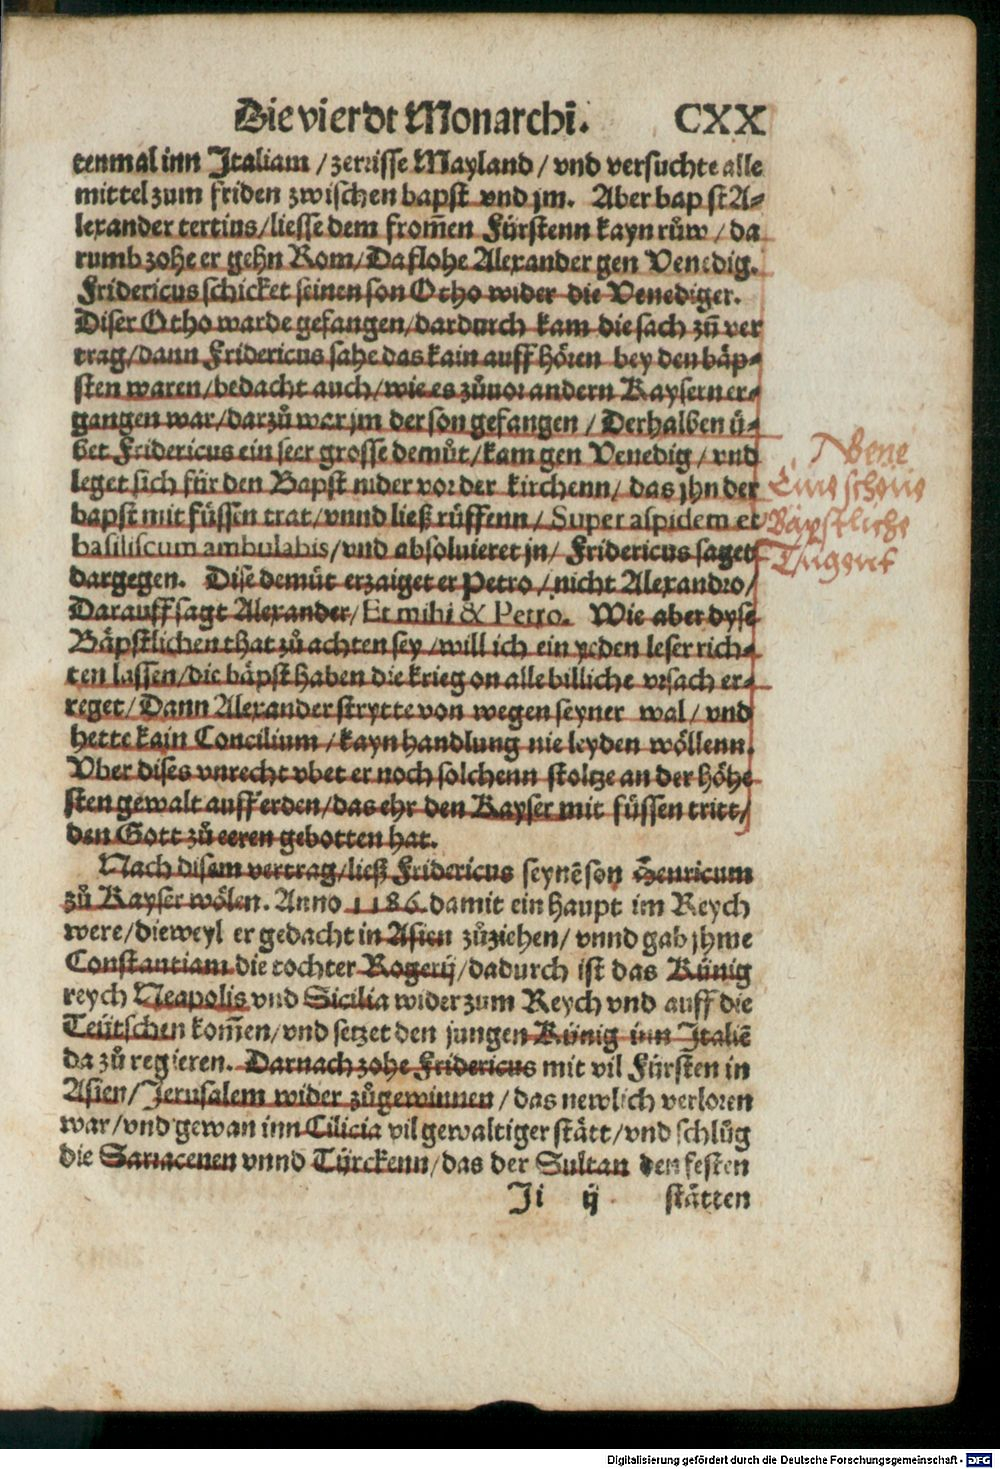 Die vierdt Monarchi. CXX
tenmal inn Italiam / zerrisse Mayland / vnd versuchte alle
mittel zum friden zwischen bapst vnd jm. Aber bapst A⸗
lexander tertius / liesse dem from̃en Fürstenn kayn růw / da
rumb zohe er gehn Rom / Da flohe Alexander gen Venedig.
Fridericus schicket seinen son Otho wider die Venediger.
Diser Otho warde gefangen / dardurch kam die sach zů ver
trag / dann Fridericus sahe das kain auff hören bey den bäp⸗
sten waren / bedacht auch / wie es zůuor andern Kaysern er⸗
gangen war / darzů war jm der son gefangen / Derhalben ü⸗
bet Fridericus ein seer grosse demůt / kam gen Venedig / vnd
leget sich für den Bapst nider vor der kirchenn / das jhn der
bapst mit füssen trat / vnnd ließ rüffenn / Super aspidem et
basiliscum ambulabis / vnd absoluieret jn / Fridericus saget
dargegen. Dise demüt erzaiget er Petro / nicht Alexandro /
Darauff sagt Alexander / Et mihi & Petro. Wie aber dyse
Bäpstlichen that zů achten sey / will ich ein yeden leser rich⸗
ten lassen / die bäpst haben die krieg on alle billiche vrsach er⸗
reget / Dann Alexander strytte von wegen seyner wal / vnd
hette kain Concilium / kayn handlung nie leyden wöllenn.
Vber dises vnrecht vbet er noch solchenn stoltze an der höhe
sten gewalt auff erden / das ehr den Kayser mit füssen tritt /
den Gott zů eeren gebotten hat.
Nach disem vertrag / ließ Fridericus seynẽ son Henricum
zů Kayser wölen. Anno 1186. damit ein haupt im Reych
were / dieweyl er gedacht in Asien zůziehen / vnnd gab jhme
Constantiam die tochter Rogerij / dadurch ist das Künig
reych Neapolis vnd Sicilia wider zum Reych vnd auff die
Teütschen kom̃en / vnd setzet den jungen Künig inn Italiẽ
da zů regieren. Darnach zohe Fridericus mit vil Fürsten in
Asien / Jerusalem wider zůgewinnen / das newlich verloren
war / vnd gewan inn Cilicia vil gewaltiger stätt / vnd schlůg
die Sarracenen vnnd Türckenn / das der Sultan den festen
Ji ij stätten
Nene
Eine schöne
Bäpstliche
Tugent
Digitalisierung gefördert durch die Deutsche Forschungsgemeinschaft - DFG